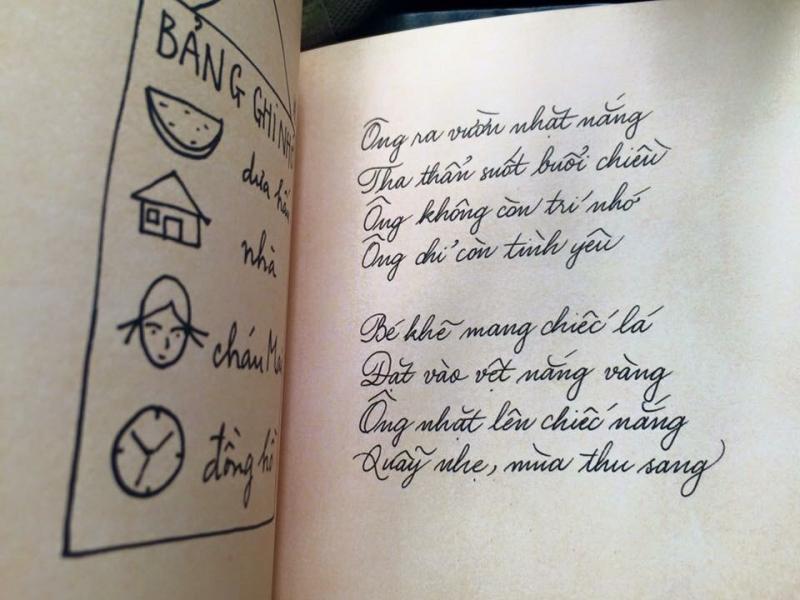 BẢNG GHI NHỚ
dưa hấu
nhà
cháu Mai
đồng hồ
Ông ra vườn nhặt nắng
Tha thẩn suốt buổi chiều
Ông không còn trí nhớ
Ông chỉ còn tình yêu
Bé khẽ mang chiếc lá
Đặt vào vệt nắng vàng
Ông nhặt lên chiếc nắng
Quẫy nhẹ, mùa thu sang